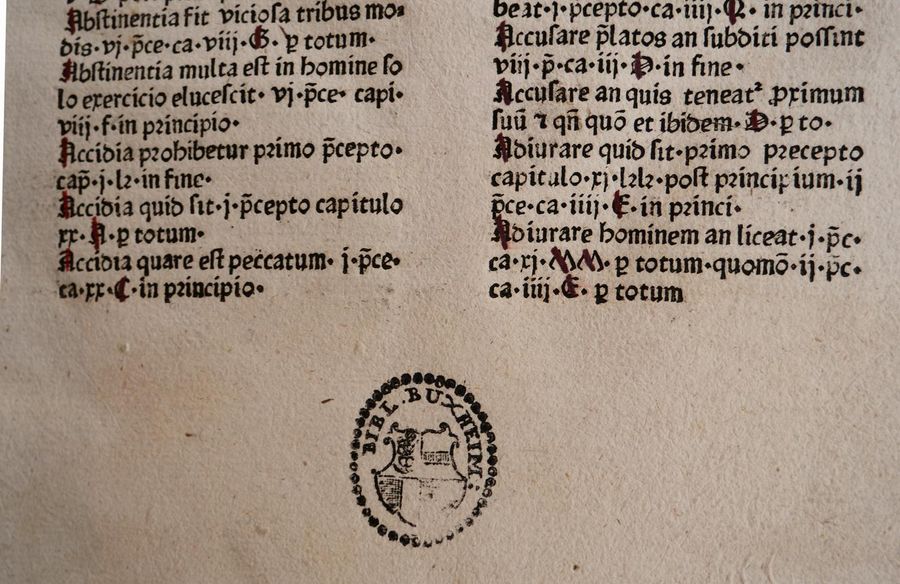 Abstinentia fit viciosa tribus mo⸗
dis·vj·p̄ce·ca·viij·G·ꝑ totum·
Abstinentia multa est in homine so
lo exercicio elucescit·vj·p̄ce·capi·
viij·f·in principio·
Accidia prohibetur primo p̄cepto·
cap̄·j·lꝛ·in fine·
Accidia quid sit·j·p̄cepto capitulo
xx·A·ꝑ totum·
Accidia quare est peccatum·j·p̄ce·
ca·xx·C·in principio·
beat·j·pcepto·ca·iiij·R·in princi·
Accusare p̄latos an subditi possint
viij·p̄·ca·iij·D·in fine·
Accusare an quis teneat² ꝓximum
suū ⁊ qn̄ quō et ibidem·D·ꝑ to·
Adiurare quid sit·primo precepto
capitulo·xj·lꝛlꝛ·post principium·ij
p̄ce·ca·iiij·E·in princi·
Adiurare hominem an liceat·j·p̄c·
ca·xj·MM·ꝑ totum·quomō·ij·p̄c·
ca·iiij·E·ꝑ totum
BIBL. BUXHEIM: